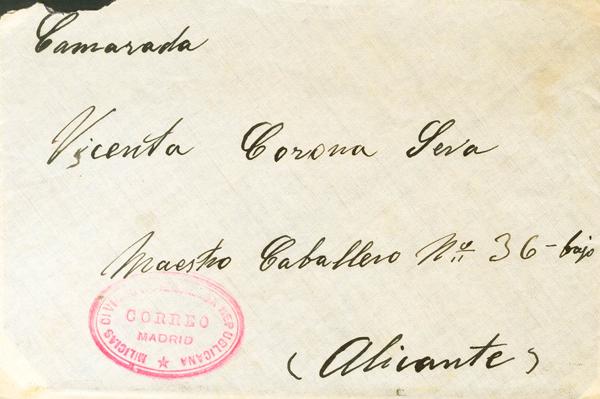 Camarada
Vicenta Corona Seva
Maestro Caballero Nº 36 - bajo
MILICIAS REPUBLICANA
CORREO
MADRID
(Alicante)